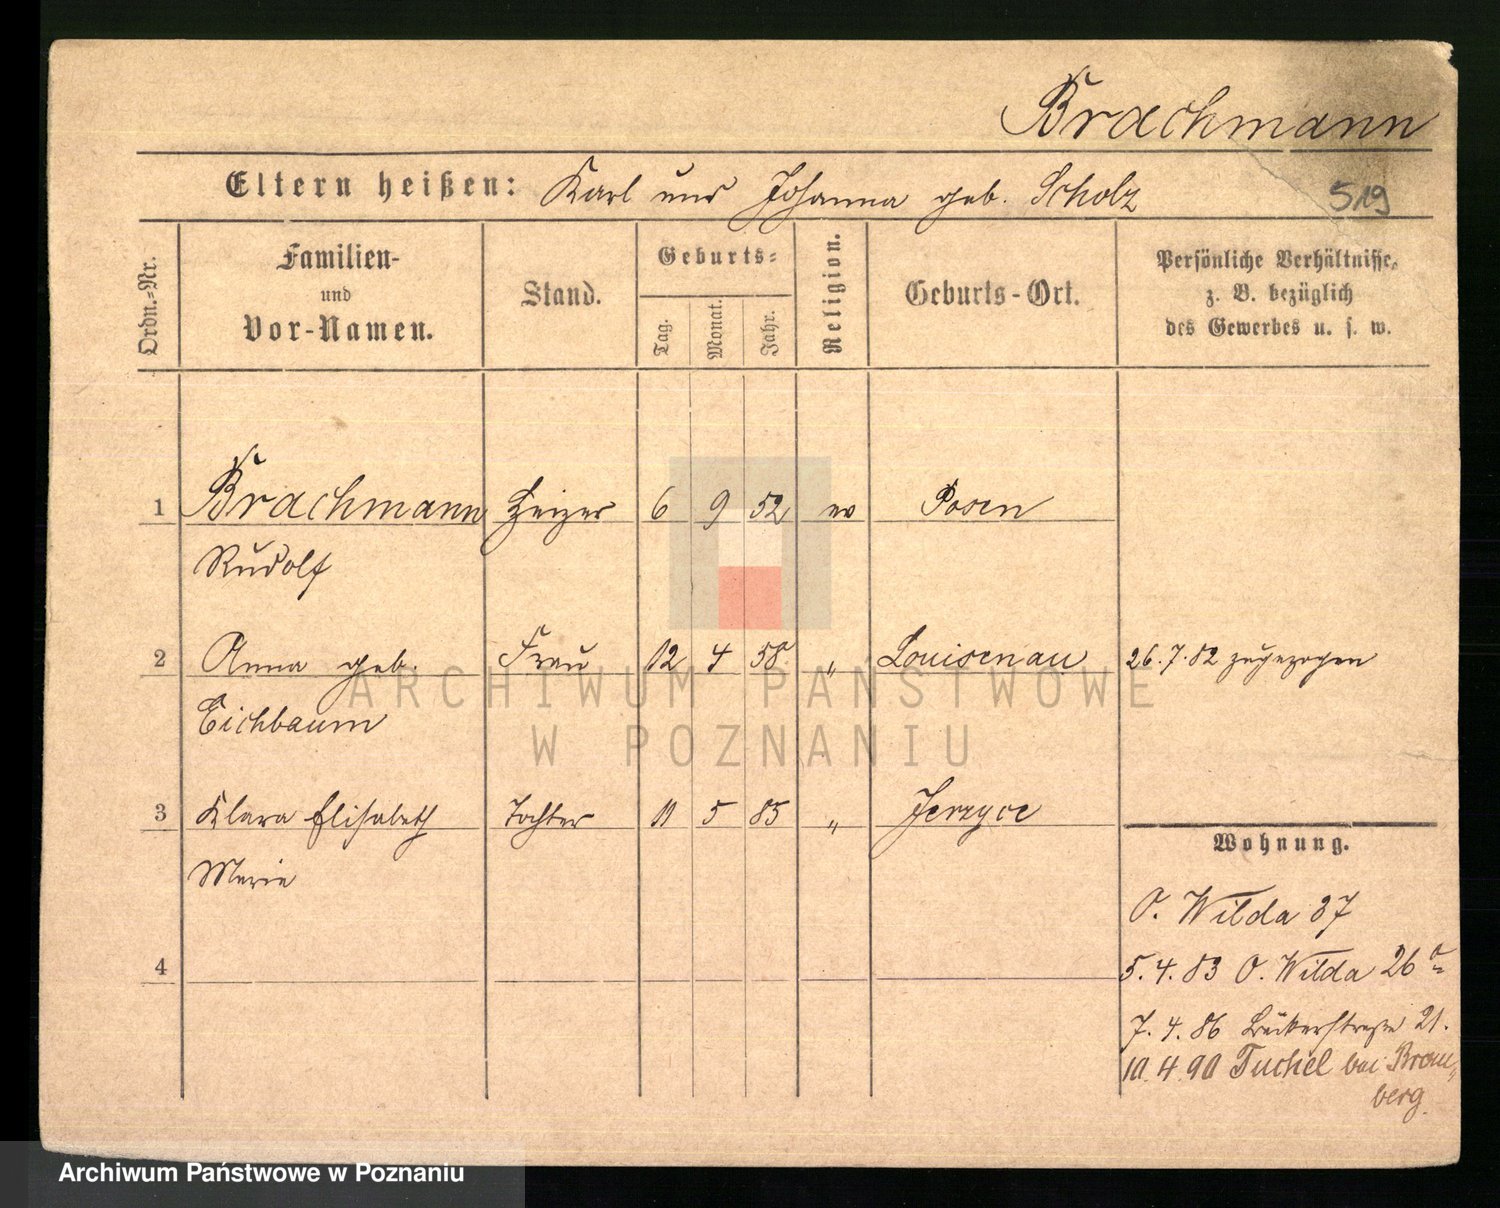 Brachmann
Eltern heißen: Karl und Johanna geb. Scholz
519
Ordn.-Nr.
Familien-
und
Vor-Namen.
Stand.
Geburts-
Tag.
Monat.
Jahr.
Religion.
Geburts-Ort.
Persönliche Verhältnisse,
z. B. bezüglich
des Gewerbes u. s. w.
1 Brachmann Heizer 6 9 52 ev Posen
Rudolf
2 Anna geb. Frau 12 4 58 " Louisenau 26.7.82 zugezogen
Eichbaum
3 Klara Elisabeth Tochter 11 5 85 " Jerzyce
Marie
Wohnung.
O. Wilda 37
4
5.4.83 O. Wilda 26 a
7.4.86 Bäckerstraße 21.
10.4.90 Tuchel bei Brom-
berg.
ARCHIWUM PAŃSTWOWE
W POZNANIU
Archiwum Państwowe w Poznaniu